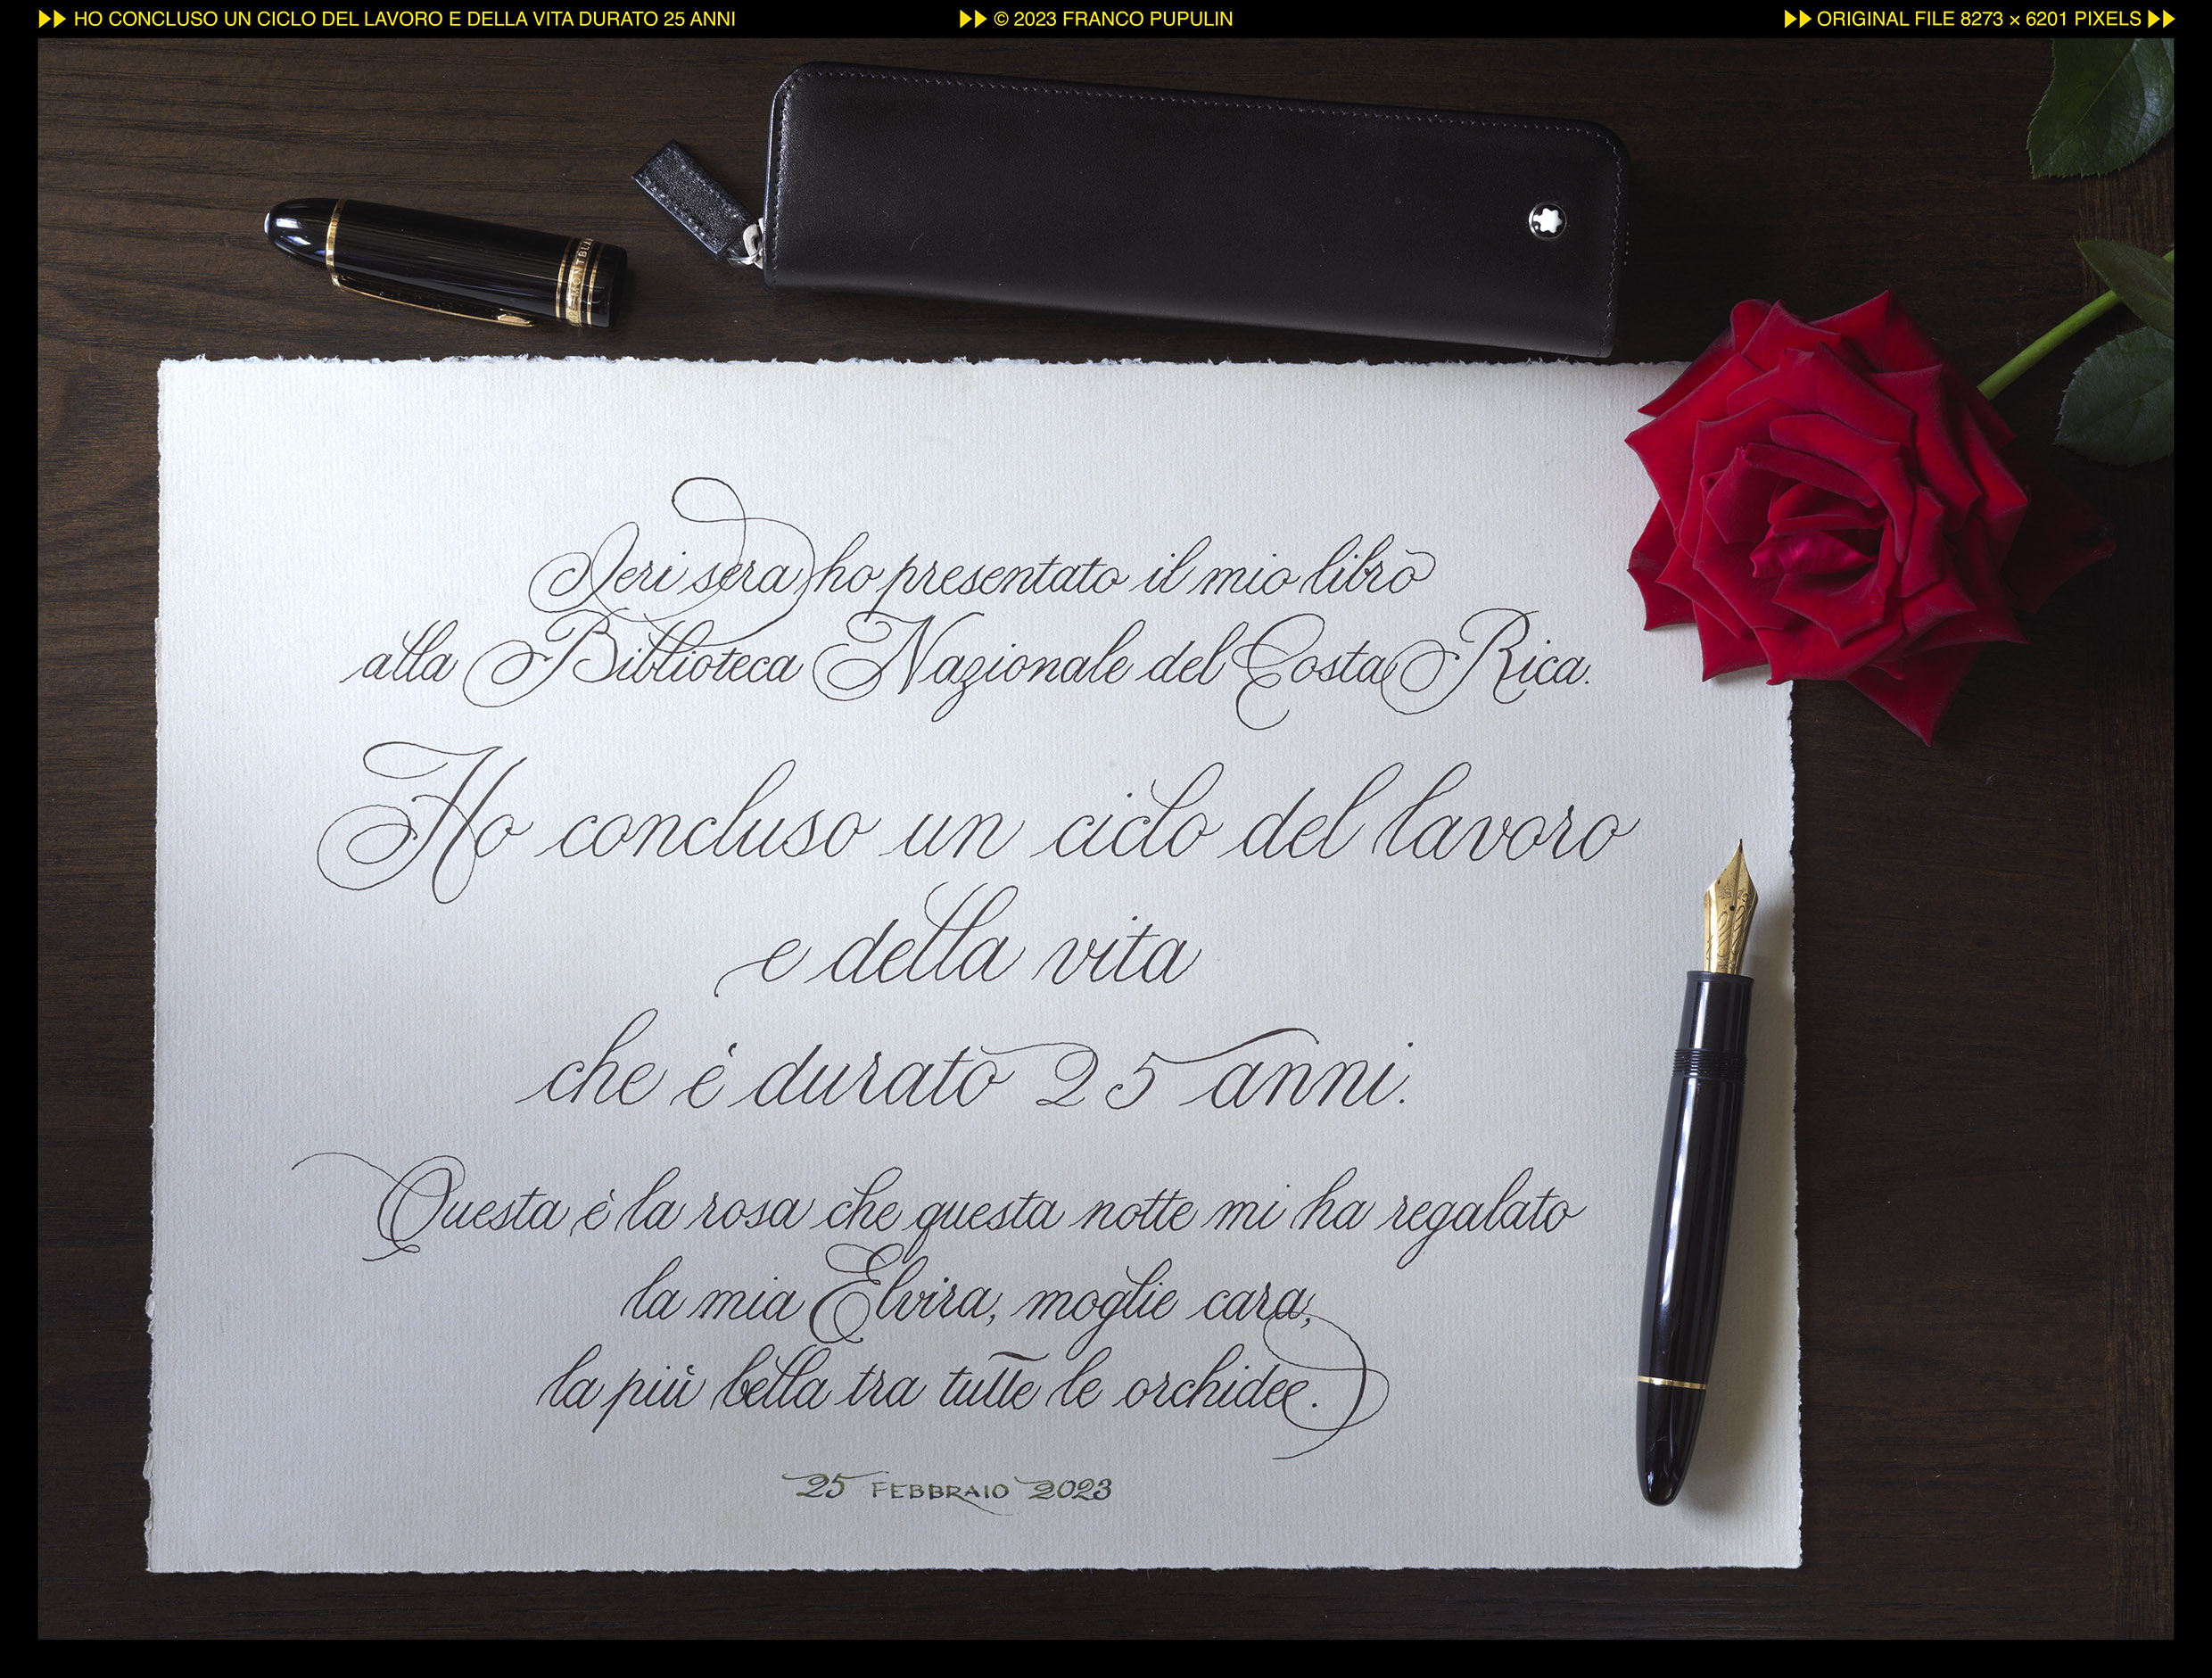 HO CONCLUSO UN CICLO DEL LAVORO E DELLA VITA DURATO 25 ANNI
© 2023 FRANCO PUPULIN
ORIGINAL FILE 8273 × 6201 PIXELS
Ieri sera ho presentato il mio libro
alla Biblioteca Nazionale del Costa Rica.
Ho concluso un ciclo del lavoro
e della vita
che è durato 25 anni.
Questa è la rosa che questa notte mi ha regalato
la mia Elvira, moglie cara,
la più bella tra tutte le orchidee.
25 FEBBRAIO 2023